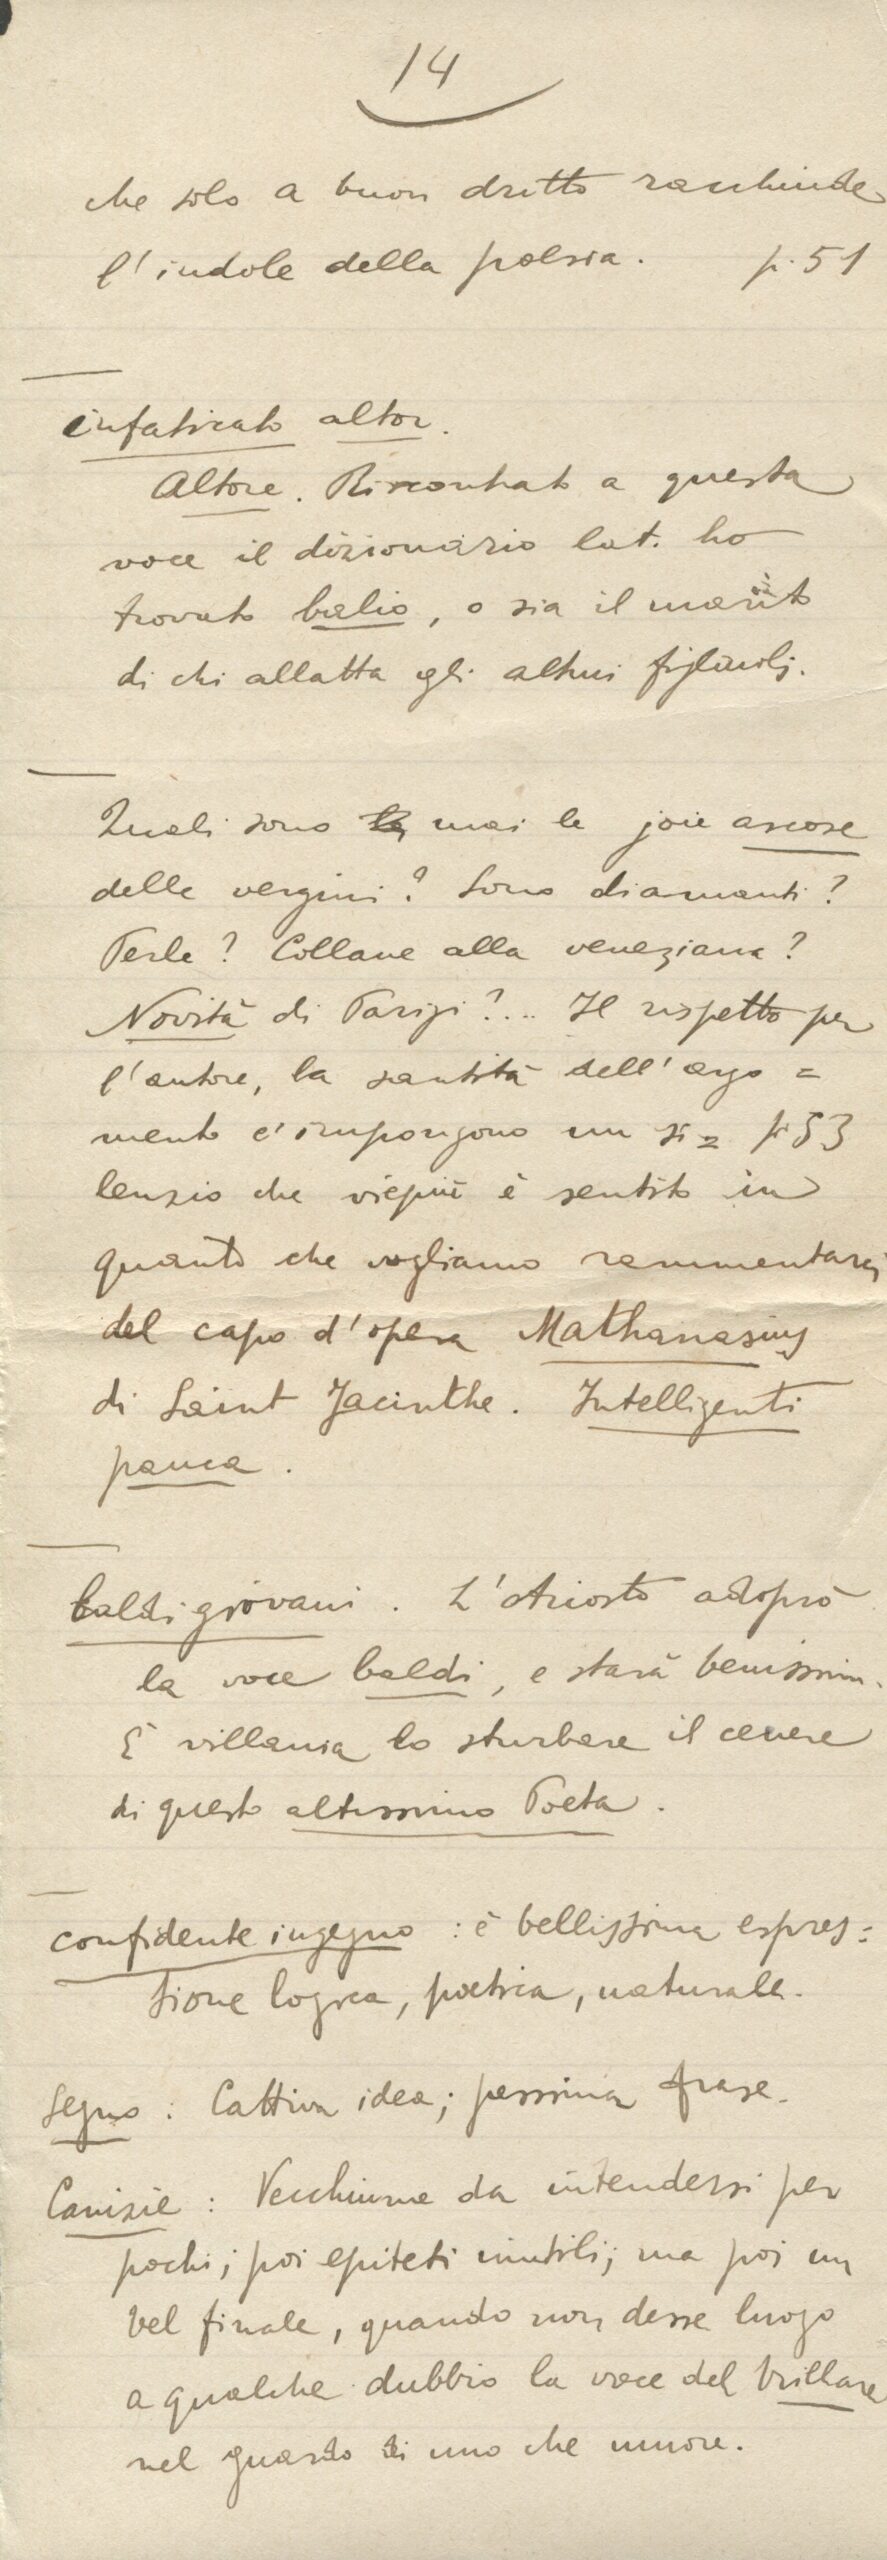 14
che solo a buon dritto racchiude
l'indole della poesia. p. 51
infaticato altor.
Altore. Riscontrato a questa
voce il dizionario lat. ho
trovato balio, o sia il marito
di chi allatta gli altrui figliuoli.
Quali sono mai le joie ascose
delle vergini? Sono diamanti?
Perle? Collane alla veneziana?
Novità di Parigi?... Il rispetto per
l'autore, la santità dell'argo=
mento c'impongono un si= p 53
lenzio che viepiù è sentito in
quanto che vogliamo rammentarci
del capo d'opera Mathanasius
di Saint Jacinthe. Intelligenti
pauca.
baldi giovani. L'Ariosto adoprò
la voce baldi, e starà benissim.
È villania lo sturbare il cenere
di questo altissimo Poeta.
confidente ingegno: è bellissima espres=
sione logica, poetica, naturale.
Segno: Cattiva idea; pessima frase.
Canizie: Vecchiume da intendersi per
pochi; poi epiteti inutili; ma poi un
bel finale, quando non desse luogo
a qualche dubbio la voce del brillare
nel guardo di uno che muore.